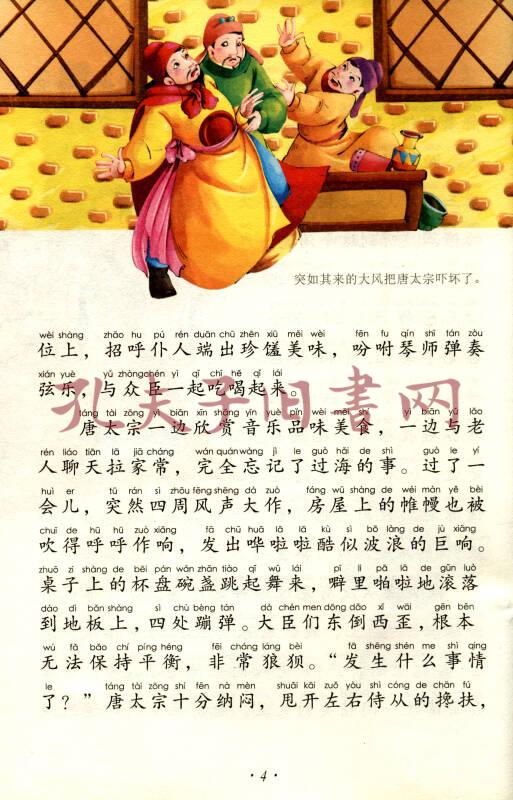 突如其来的大风把唐太宗吓坏了。
wèi shàng zhāo hu pú rén duān chū zhēn xiū měi wèi fēn fu qín shī tán zòu
位上，招呼仆人端出珍馐美味，吩咐琴师弹奏
xián yuè yǔ zhòng chén yì qǐ chī hē qǐ lái
弦乐，与众臣一起吃喝起来。
táng tài zōng yì biān xīn shǎng yīn yuè pǐn wèi měi shí yì biān yǔ lǎo
唐太宗一边欣赏音乐品味美食，一边与老
rén liáo tiān lā jiā cháng wán quán wàng jì le guò hǎi de shì guò le yí
人聊天拉家常，完全忘记了过海的事。过了一
huì er tū rán sì zhōu fēng shēng dà zuò fáng wū shàng de wéi màn yě bèi
会儿，突然四周风声大作，房屋上的帷幔也被
chuī de hū hū zuò xiǎng fā chū huā lā lā kù sì bō làng de jù xiǎng
吹得呼呼作响，发出哗啦啦酷似波浪的巨响。
zhuō zi shàng de bēi pán wǎn zhǎn tiào qǐ wǔ lái pī li pā lā de gǔn luò
桌子上的杯盘碗盏跳起舞来，噼里啪啦地滚落
dào dì bǎn shàng sì chù bèng tán dà chén men dōng dǎo xī wāi gēn běn
到地板上，四处蹦弹。大臣们东倒西歪，根本
wú fǎ bǎo chí píng héng fēi cháng láng bèi fā shēng shén me shì qing
无法保持平衡，非常狼狈。“发生什么事情
le táng tài zōng shí fēn nà mèn shuǎi kāi zuǒ yòu shì cóng de chān fú
了？”唐太宗十分纳闷，甩开左右侍从的搀扶，
·4·
孔夫子旧书网